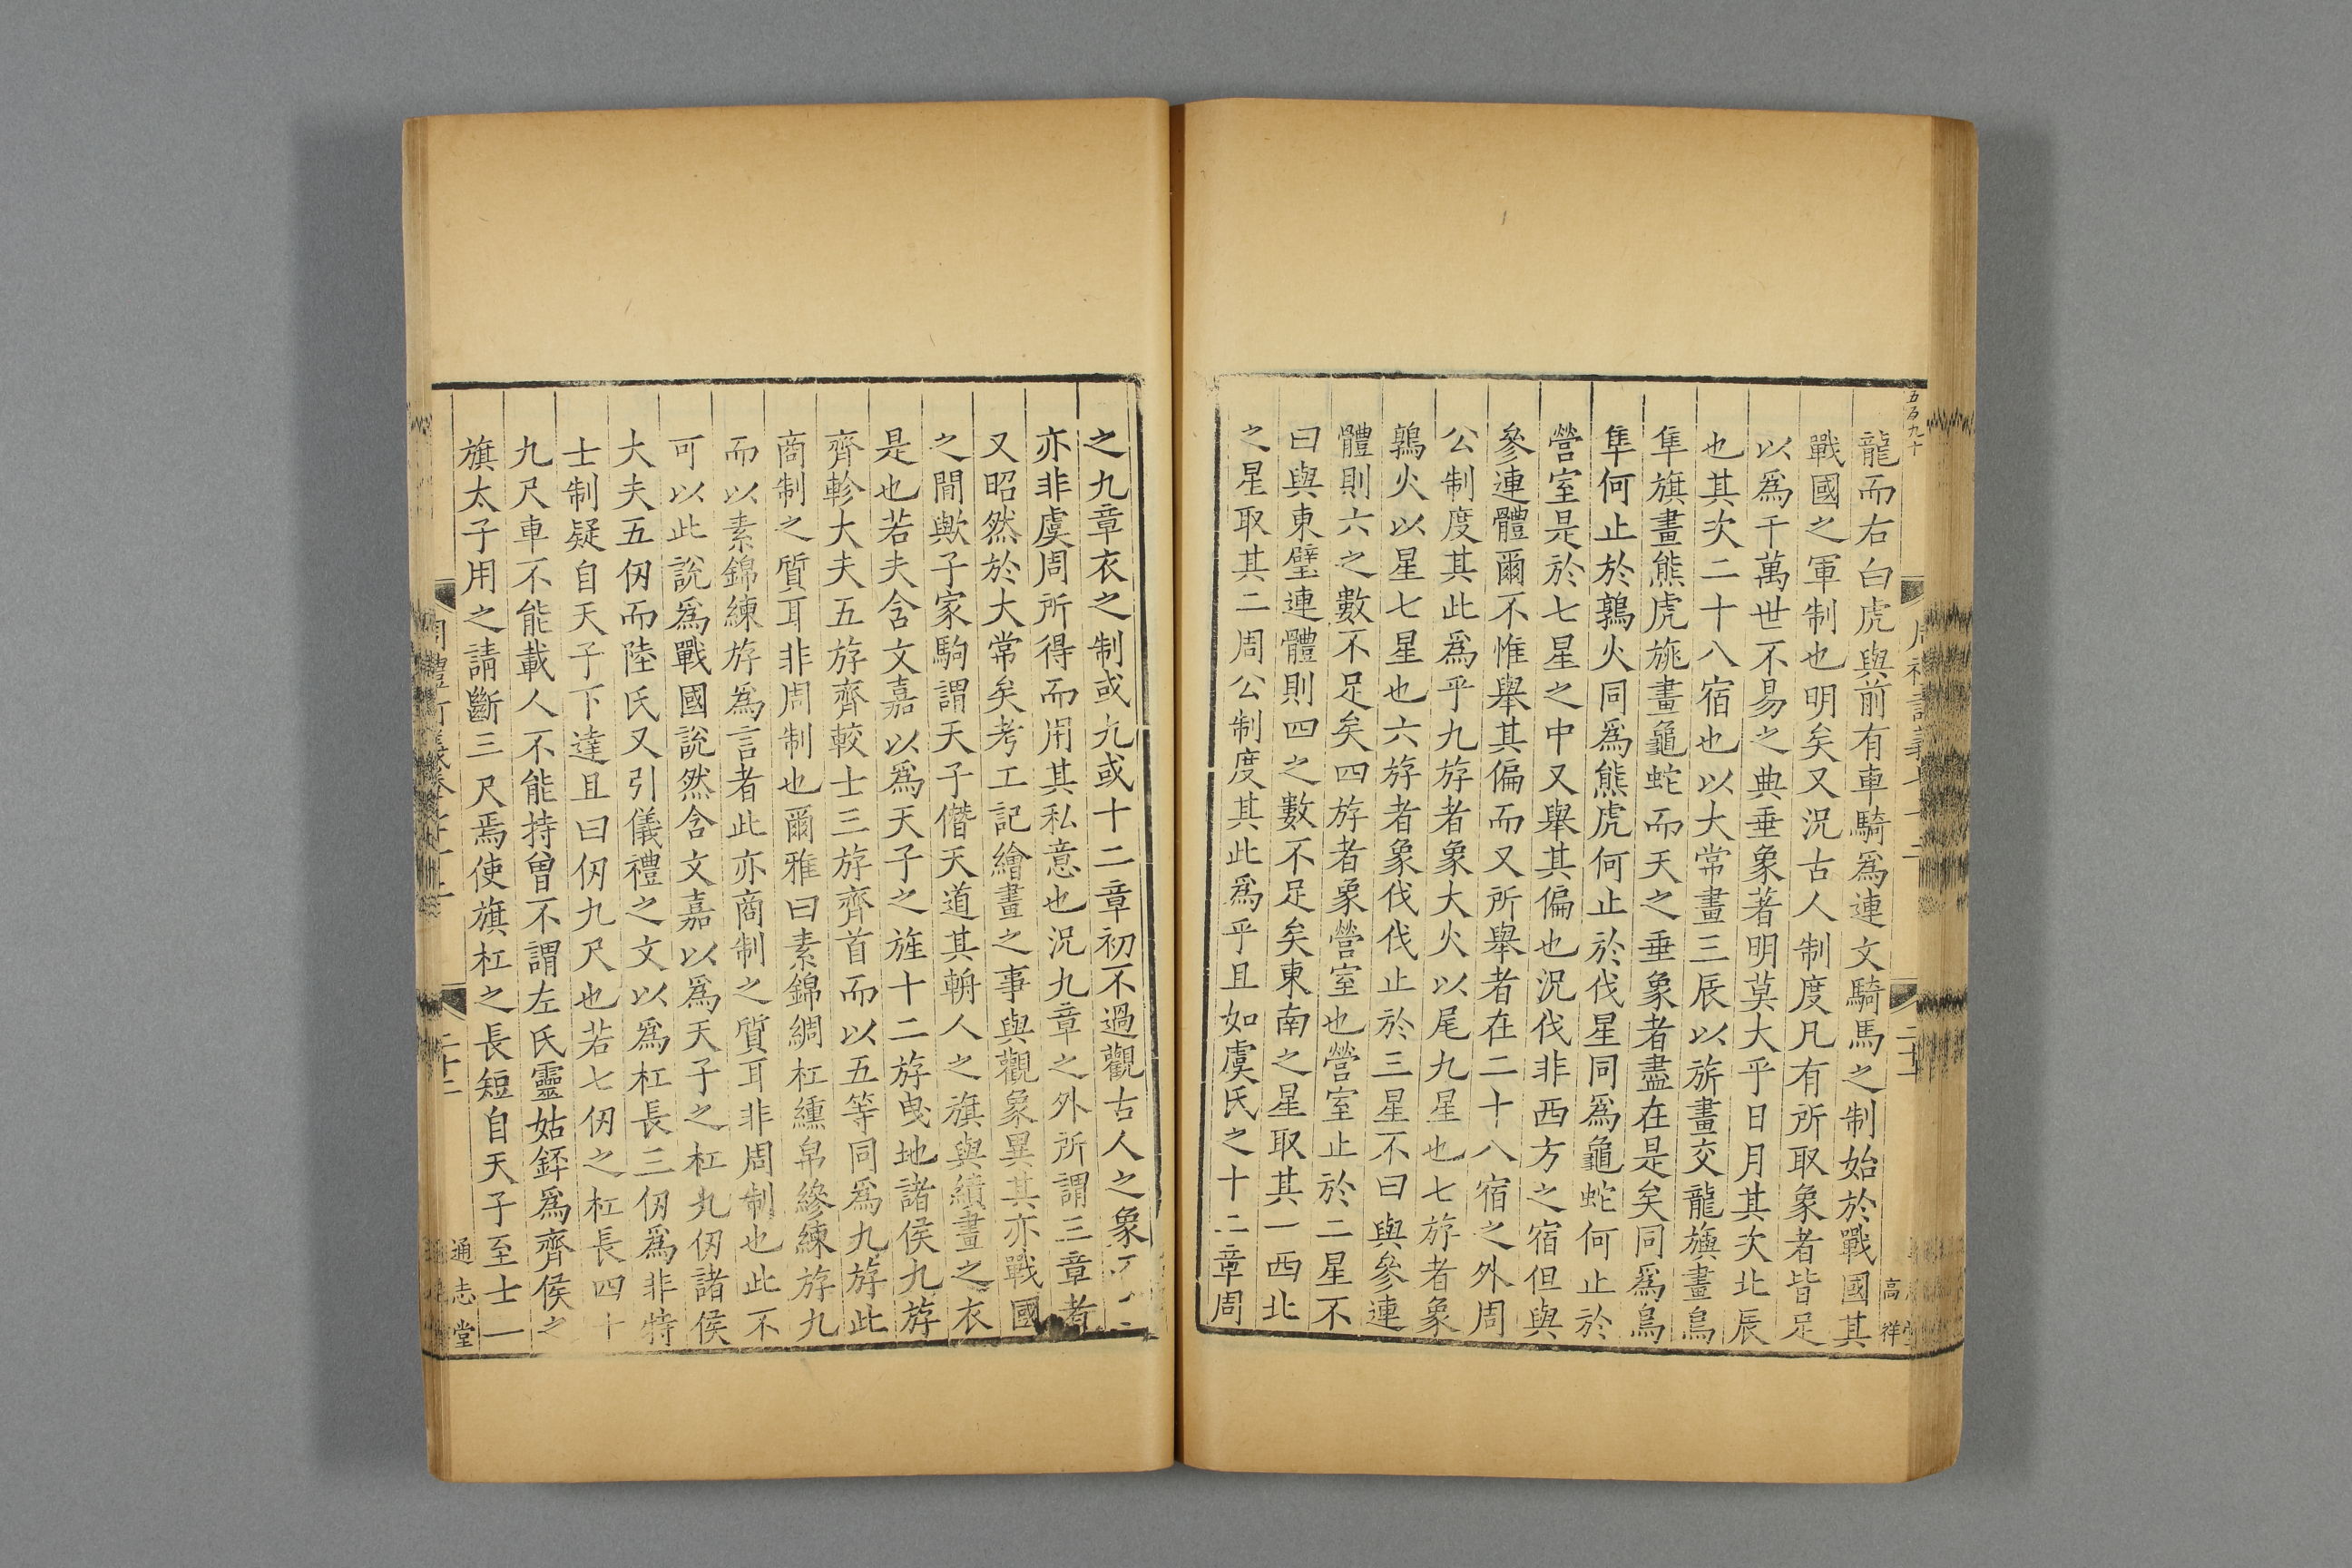 五百九十
龍而右白虎與前有車騎爲連文騎馬之制始於戰國其
戰國之軍制也明矣又況古人制度凡有所取象者皆足
以爲千萬世不易之典垂象著明莫大乎日月其次北辰
也其次二十八宿也以大常畫三辰以旂畫交龍旟畫鳥
隼旗畫熊虎旐畫龜蛇而天之垂象者盡在是矣同爲鳥
隼何止於鶉火同爲熊虎何止於伐星同爲龜蛇何止於
營室是於七星之中又舉其偏也況伐非西方之宿但與
參連體爾不惟舉其偏而又所舉者在二十八宿之外周
公制度其此爲乎九斿者象大火以尾九星也七斿者象
鶉火以星七星也六斿者象伐伐止於三星不曰與參連
體則六之數不足矣四斿者象營室也營室止於二星不
曰與東壁連體則四之數不足矣東南之星取其一西北
之星取其二周公制度其此爲乎且如虞氏之十二章周
高祥
之九章衣之制或九或十二章初不過觀古人之象
亦非虞周所得而用其私意也況九章之外所謂三章者
又昭然於大常矣考工記繪畫之事與觀象異其亦戰國
之間歟子家駒謂天子僭天道其輈人之旗與繢畫之衣
是也若夫含文嘉以爲天子之旌十二斿曳地諸侯九斿
齊軫大夫五斿齊較士三斿齊首而以五等同爲九斿此
商制之質耳非周制也爾雅曰素錦綢杠纁帛縿練斿九
而以素錦練斿爲言者此亦商制之質耳非周制也此不
可以此說爲戰國說然含文嘉以爲天子之杠九仞諸侯
大夫五仞而陸氏又引儀禮之文以爲杠長三仞爲非特
士制疑自天子下達且曰仞九尺也若七仞之杠長四十
九尺車不能載人不能持曾不謂左氏靈姑銔爲齊侯之
旗太子用之請斷三尺焉使旗杠之長短自天子至士一
二十二
通志堂